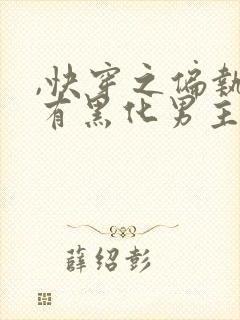 ,快穿之偏执
有黑化男主
薛绍彭